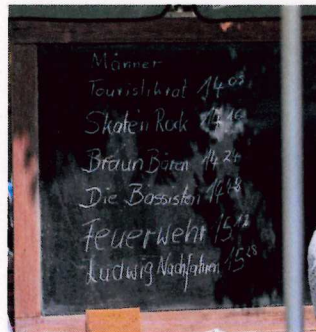 Männer
Touristikrat 14 00
Skaten Rock 14
Braun Bären 14 24
Die Bassisten 14 48
Feuerwehr 15 12
Ludwig Nachfahren 15 28